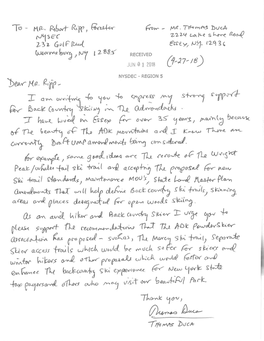 To - MR. Robert Ripp, Forester
NYSDEC
232 Golf Road
Warrensburg, NY 12885
From - MR. Thomas Duca
2224 Lake Shore Road
Essex, NY, 12936
RECEIVED
JUN 03 2018
NYSDEC - REGION 5
(4-27-18)
Dear Mr. Ripp.
I am writing to you to express my strong support
for Back Country Skiing in the Adirondacks.
I have lived in Essex for over 35 years, mainly because
of the beauty of the ADK mountains and I know There are
currently Draft UMP amendments being considered.
For example, some good ideas are The reroute of The Wright
Peak/whales tail ski trail and accepting The proposal for new
Ski trail standards, maintenance, State Land Master Plan
Amendments that will help define Back country ski trails, skinning
areas and places designated for open woods skiing.
As an avid hiker and Back Country Skier I urge you to
please support the recommendations That The ADK Powder Skier
association has proposed - such as, The Marcy ski trail, separate
skier access trails which would be much safer for skiers and
winter hikers and other proposals which would foster and
enhance The backcountry ski experience for New York state
tax payers and others who may visit our beautiful Park.
Thank you,
Thomas Duca
THOMAS DUCA